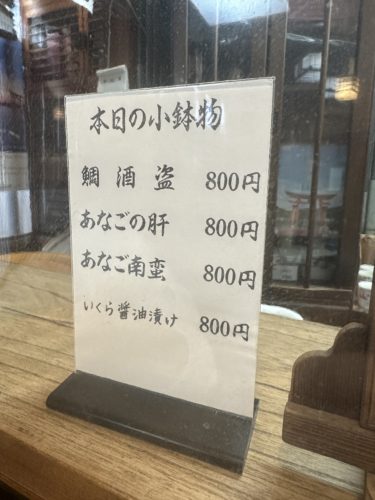 本日の小鉢物
鯛酒盗 800円
あなごの肝 800円
あなご南蛮 800円
いくら醤油漬け 800円